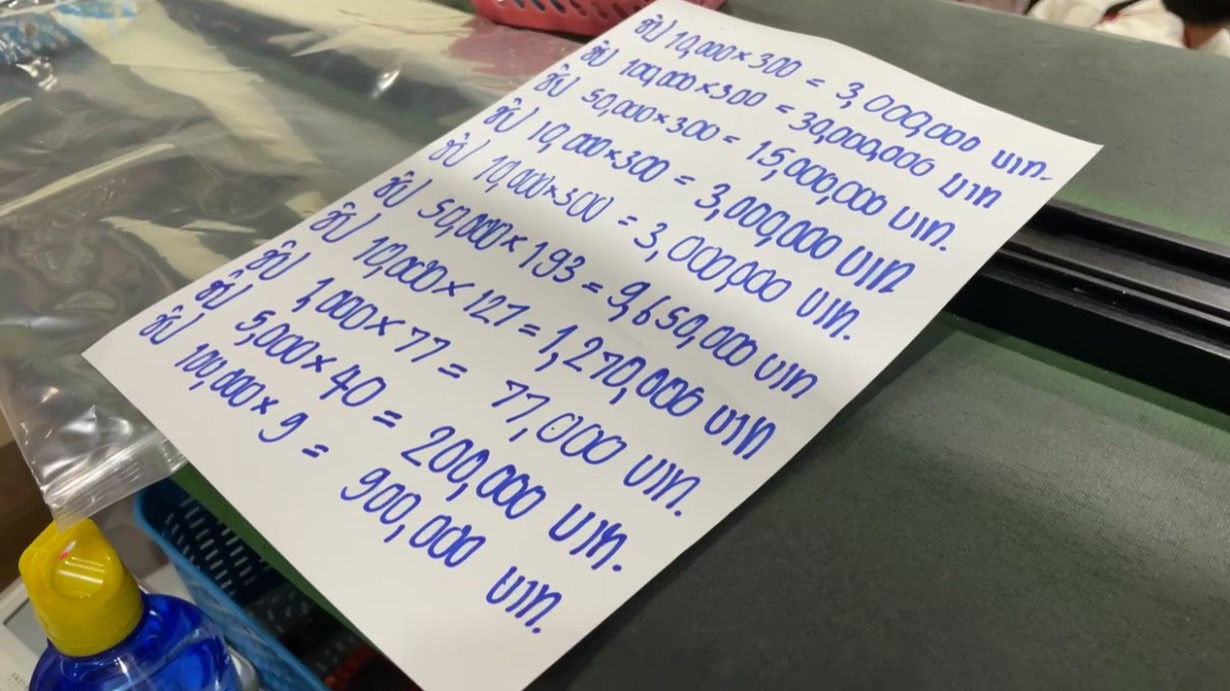 ชิป 10,000 × 300 = 3,000,000 บาท.
ชิป 100,000 × 300 = 30,000,000 บาท
ชิป 50,000 × 300 = 15,000,000 บาท.
ชิป 10,000 × 300 = 3,000,000 บาท
ชิป 10,000 × 300 = 3,000,000 บาท.
ชิป 50,000 × 193 = 9,650,000 บาท
ชิป 10,000 × 127 = 1,270,000 บาท
ชิป 1,000 × 77 = 77,000 บาท.
ชิป 5,000 × 40 = 200,000 บาท.
ชิป 100,000 × 9 = 900,000 บาท.